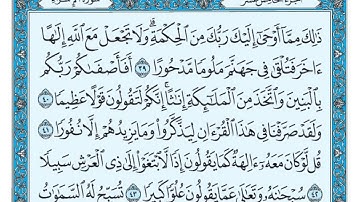 الجزء الخامس عشر سورة الإسراء
ذَٰلِكَ مِمَّآ أَوْحَىٰٓ إِلَيْكَ رَبُّكَ مِنَ ٱلْحِكْمَةِ ۗ وَلَا تَجْعَلْ مَعَ ٱللَّهِ إِلَٰهًا
ءَاخَرَ فَتُلْقَىٰ فِى جَهَنَّمَ مَلُومًا مَّدْحُورًا ٣٩ أَفَأَصْفَىٰكُمْ رَبُّكُم
بِٱلْبَنِينَ وَٱتَّخَذَ مِنَ ٱلْمَلَٰٓئِكَةِ إِنَٰثًا ۚ إِنَّكُمْ لَتَقُولُونَ قَوْلًا عَظِيمًا ٤٠
وَلَقَدْ صَرَّفْنَا فِى هَٰذَا ٱلْقُرْءَانِ لِيَذَّكَّرُوا۟ وَمَا يَزِيدُهُمْ إِلَّا نُفُورًا ٤١
قُل لَّوْ كَانَ مَعَهُۥٓ ءَالِهَةٌ كَمَا يَقُولُونَ إِذًا لَّٱبْتَغَوْا۟ إِلَىٰ ذِى ٱلْعَرْشِ سَبِيلًا ٤٢
سُبْحَٰنَهُۥ وَتَعَٰلَىٰ عَمَّا يَقُولُونَ عُلُوًّا كَبِيرًا ٤٣ تُسَبِّحُ لَهُ ٱلسَّمَٰوَٰتُ